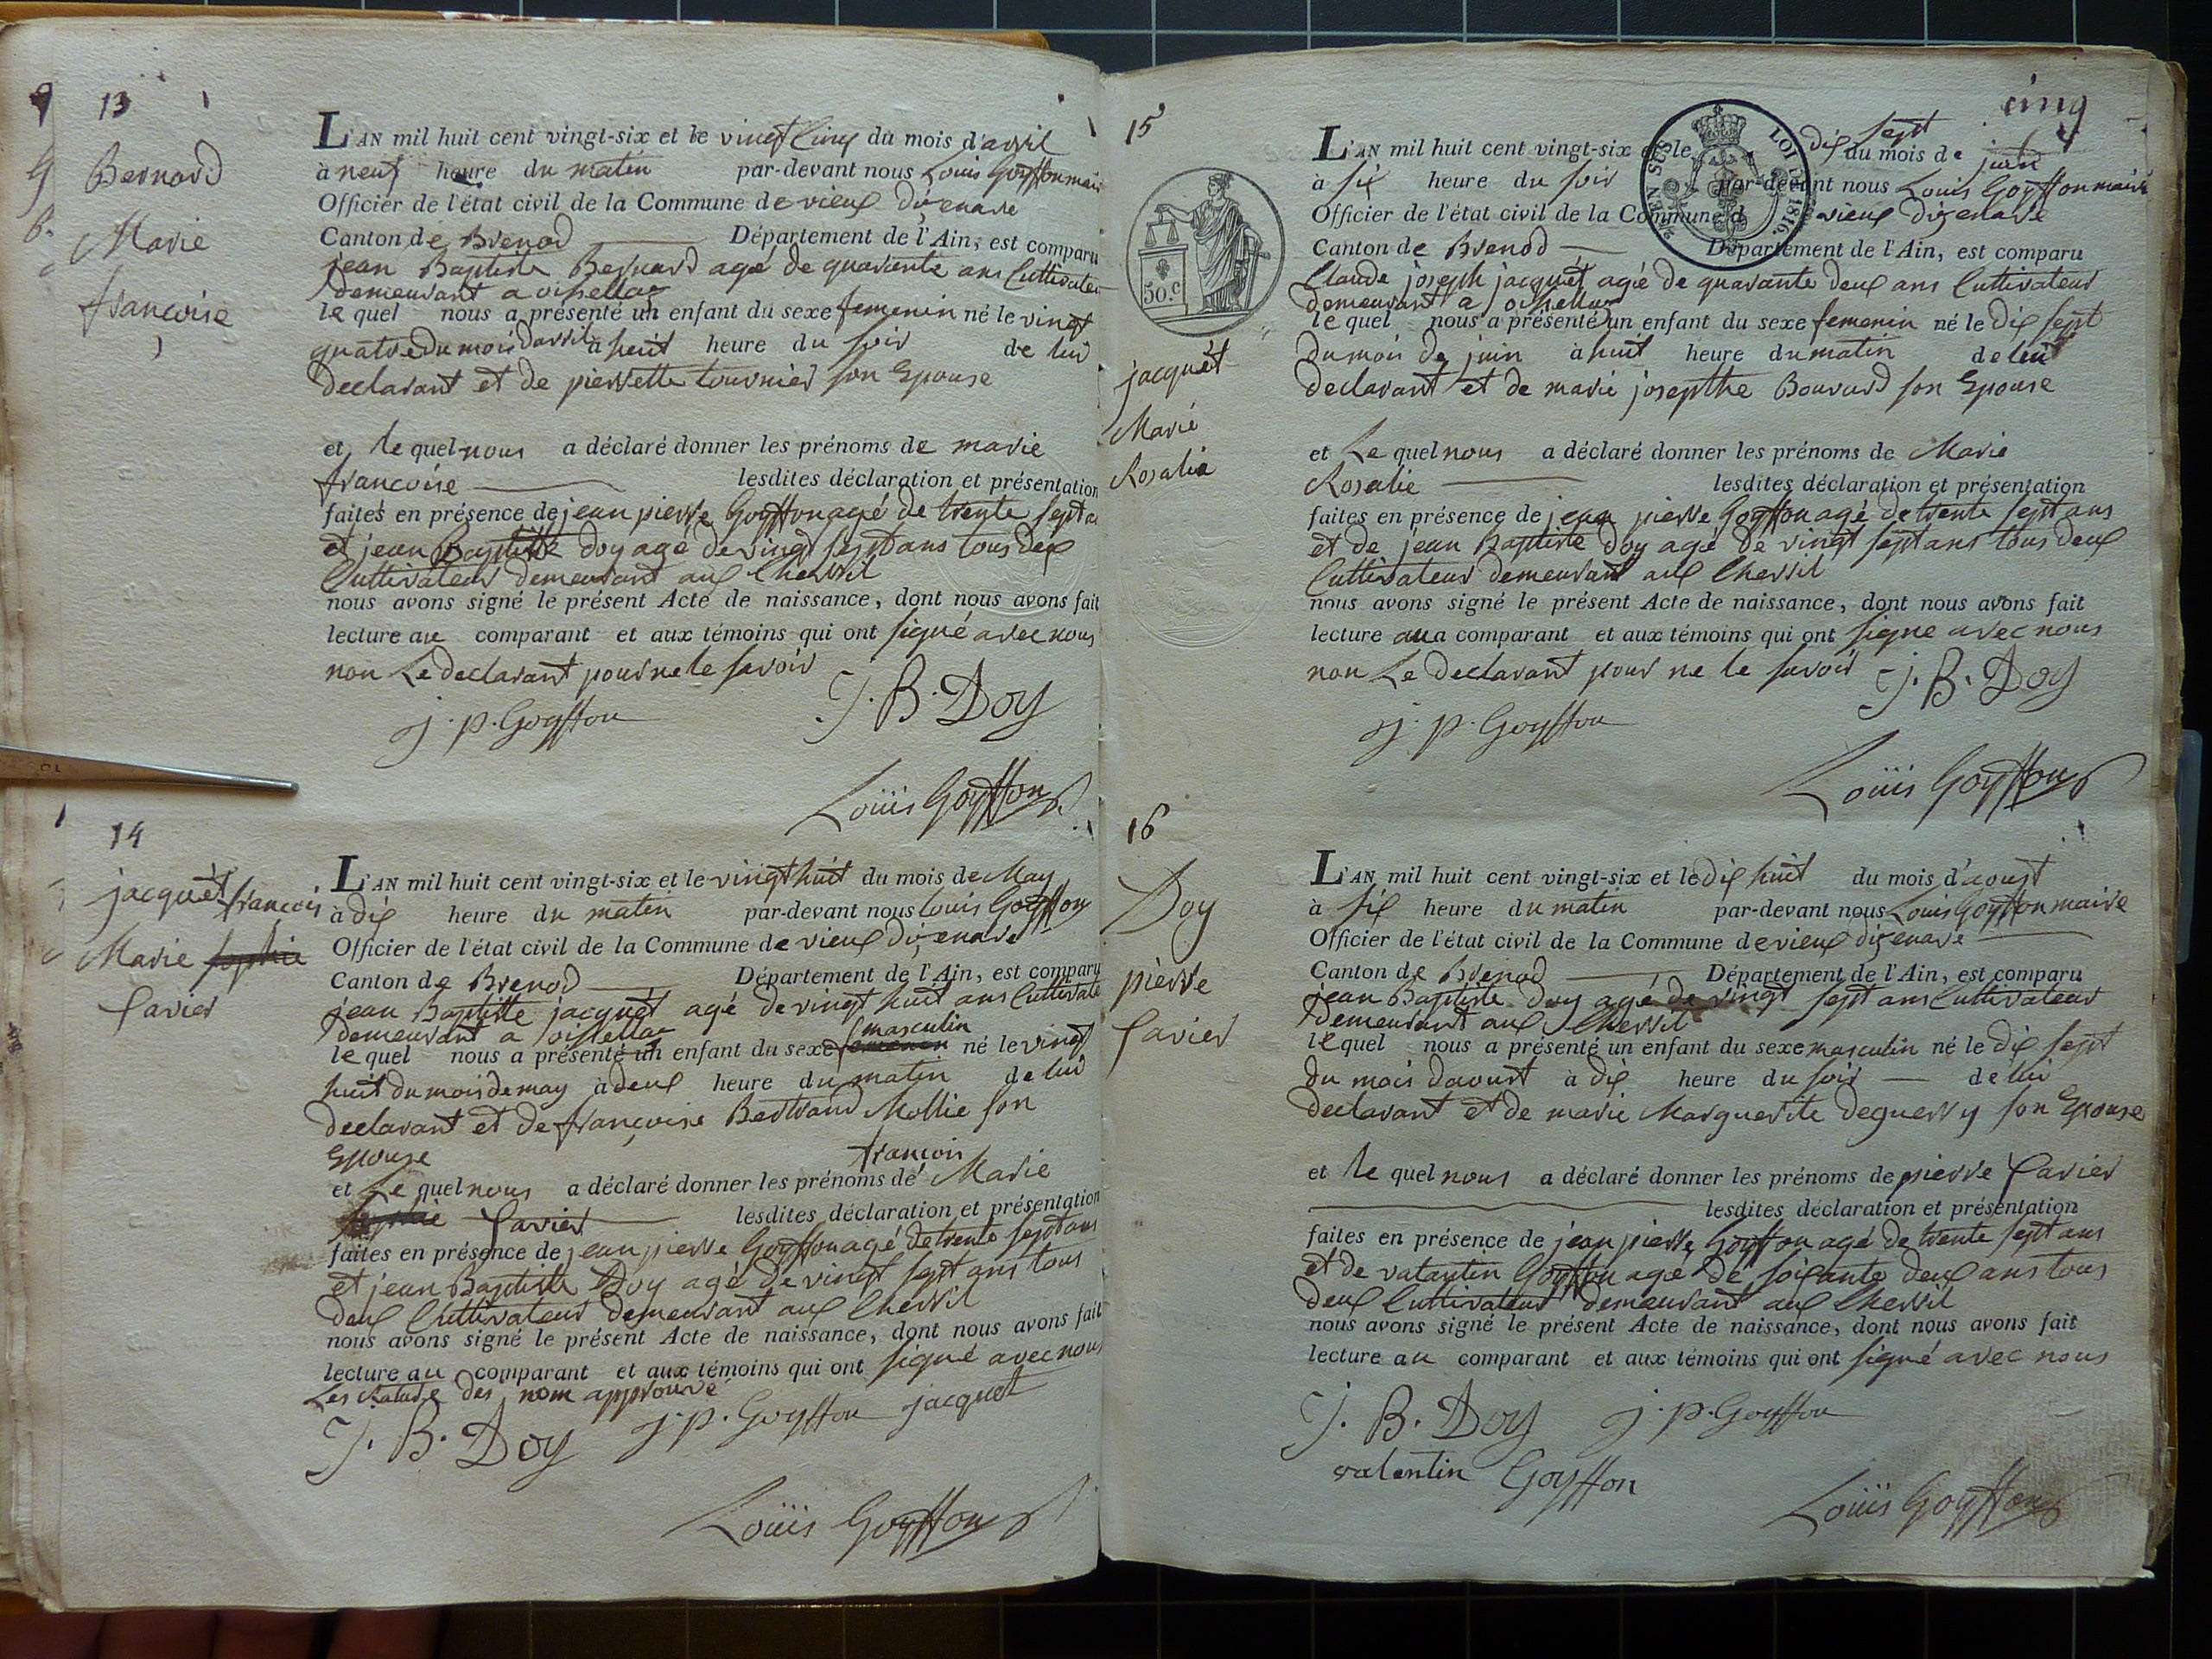 13
Bernard
Marie
francoise
L'AN mil huit cent vingt-six et le vingt Cinq du mois d'avril
à neuf heure du matin par-devant nous Louis Goyffon maire
Officier de l'état civil de la Commune de vieux dizenave
Canton de Brenod Département de l'Ain, est comparu
jean Baptiste Bernard agé de quarente ans Cultivateur
demeurant a oisellaz
le quel nous a présenté un enfant du sexe femenin né le vingt
quatre du mois davril a huit heure du soir de lui
declarant et de pierrette tournier son Epouse
et le quel nous a déclaré donner les prénoms de marie
francoise lesdites déclaration et présentation
faites en présence de jean pierre Goyffon agé de trente sept ans
et jean Baptiste Doy agé de vingt sept ans tous deux
Cultivateur demeurant aux Chervil
nous avons signé le présent Acte de naissance, dont nous avons fait
lecture au comparant et aux témoins qui ont signé avec nous
non Le declarant pour ne le savoir J. B. Doy
j. p. Goyffon
Louis Goyffon
14
jacquet françois
Marie sophie
Xavier
L'AN mil huit cent vingt-six et le vingt huit du mois de May
à dix heure du matin par-devant nous Louis Goyffon
Officier de l'état civil de la Commune de vieux dizenave
Canton de Brenod Département de l'Ain, est comparu
jean Baptiste jacquet agé de vingt huit ans Cultivate
demeurant a oisellaz
masculin
le quel nous a présenté un enfant du sexe femenin né le vingt
huit du mois de may à deux heure du matin de lui
declarant et de françoise Bertrand Mollie son
Epouse
françois
et Le quel nous a déclaré donner les prénoms de Marie
sophie Xavier lesdites déclaration et présentation
faites en présence de jean pierre Goyffon agé de trente sept ans
et jean Baptiste Doy agé de vingt sept ans tous
deux Cultivateur demeurant aux Chervil
nous avons signé le présent Acte de naissance, dont nous avons fait
lecture au comparant et aux témoins qui ont signé avec nous
Les rature des nom approuvé
J. B. Doy j. p. Goyffon jacquet
Louis Goyffon
cinq
15
50.c
LOI 1816.
jacquét
Marie
Rosalie
sept
L'AN mil huit cent vingt-six et le dix du mois de juin
à six heure du soir par-devant nous Louis Goyffon maire
Officier de l'état civil de la Commune de vieux dizenave
Canton de Brenod Département de l'Ain, est comparu
Claude joseph jacquét agé de quarante deux ans Cultivateur
demeurant a oisellaz
le quel nous a présenté un enfant du sexe femenin né le dix sept
du mois de juin à huit heure du matin de lui
declarant et de marie josepthe Bouvard son Epouse
et Le quel nous a déclaré donner les prénoms de Marie
Rosalie lesdites déclaration et présentation
faites en présence de jean pierre Goyffon agé de trente sept ans
et de jean Baptiste Doy agé de vingt sept ans tous deux
Cultivateur demeurant aux Chervil
nous avons signé le présent Acte de naissance, dont nous avons fait
lecture au comparant et aux témoins qui ont signe avec nous
non Le declarant pour ne le savoir J. B. Doy
j. p. Goyffon
Louis Goyffon
16
Doy
pierre
Xavier
L'AN mil huit cent vingt-six et le dix huit du mois d'aoust
à six heure du matin par-devant nous Louis Goyffon maire
Officier de l'état civil de la Commune de vieux dizenave
Canton de Brenod Département de l'Ain, est comparu
jean Baptiste doy agé de vingt sept ans Cultivateur
demeurant aux Chervil
le quel nous a présenté un enfant du sexe masculin né le dix sept
du mois daoust à dix heure du soir de lui
declarant et de marie Marguerite deguerry son Epouse
et le quel nous a déclaré donner les prénoms de pierre Xavier
lesdites déclaration et présentation
faites en présence de jean pierre Goyffon agé de trente sept ans
et de valantin Goyffon agé de soixante deux ans tous
deux Cultivateur demeurant aux Chervil
nous avons signé le présent Acte de naissance, dont nous avons fait
lecture au comparant et aux témoins qui ont signé avec nous
J. B. Doy j. p. Goyffon
valentin Goyffon
Louis Goyffon